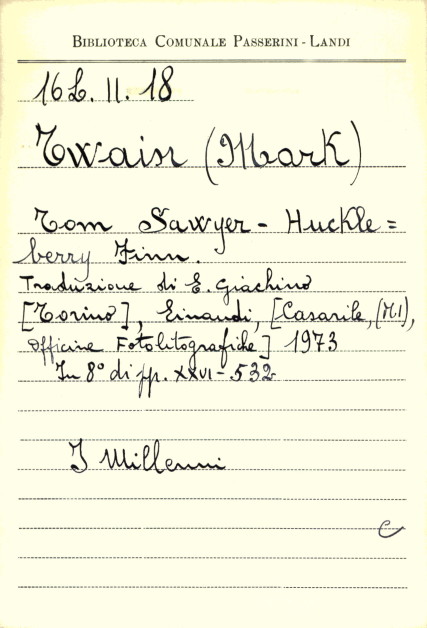 BIBLIOTECA COMUNALE PASSERINI - LANDI
16L. II. 18
Twain (Mark)
Tom Sawyer - Huckle=
berry Finn.
Traduzione di E. Giachino
[Torino], Einaudi, [Casarile, (MI),
Officine Fotolitografiche] 1973
In 8° di pp. XXVI - 532
I Millenni
C